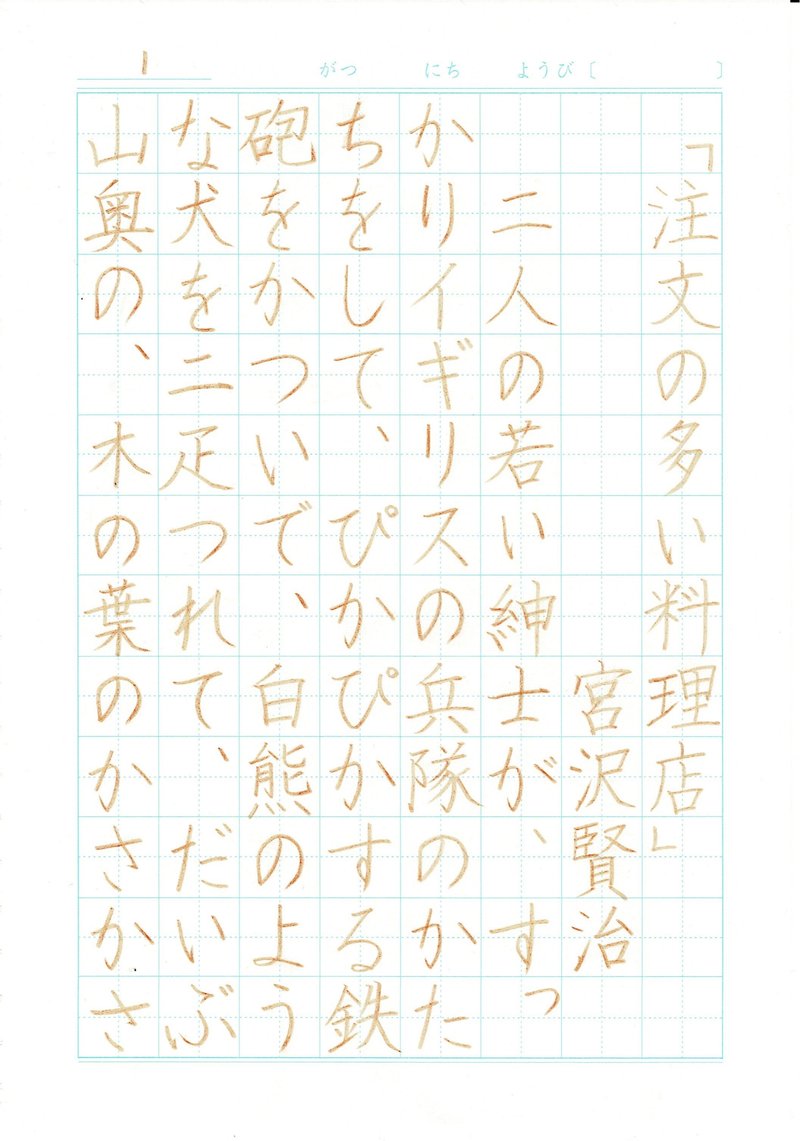 1
がつ にち ようび〔 〕
「注文の多い料理店」
宮沢賢治
二人の若い紳士が、すっ
かりイギリスの兵隊のかた
ちをして、ぴかぴかする鉄
砲をかついで、白熊のよう
な犬を二疋つれて、だいぶ
山奥の、木の葉のかさかさ